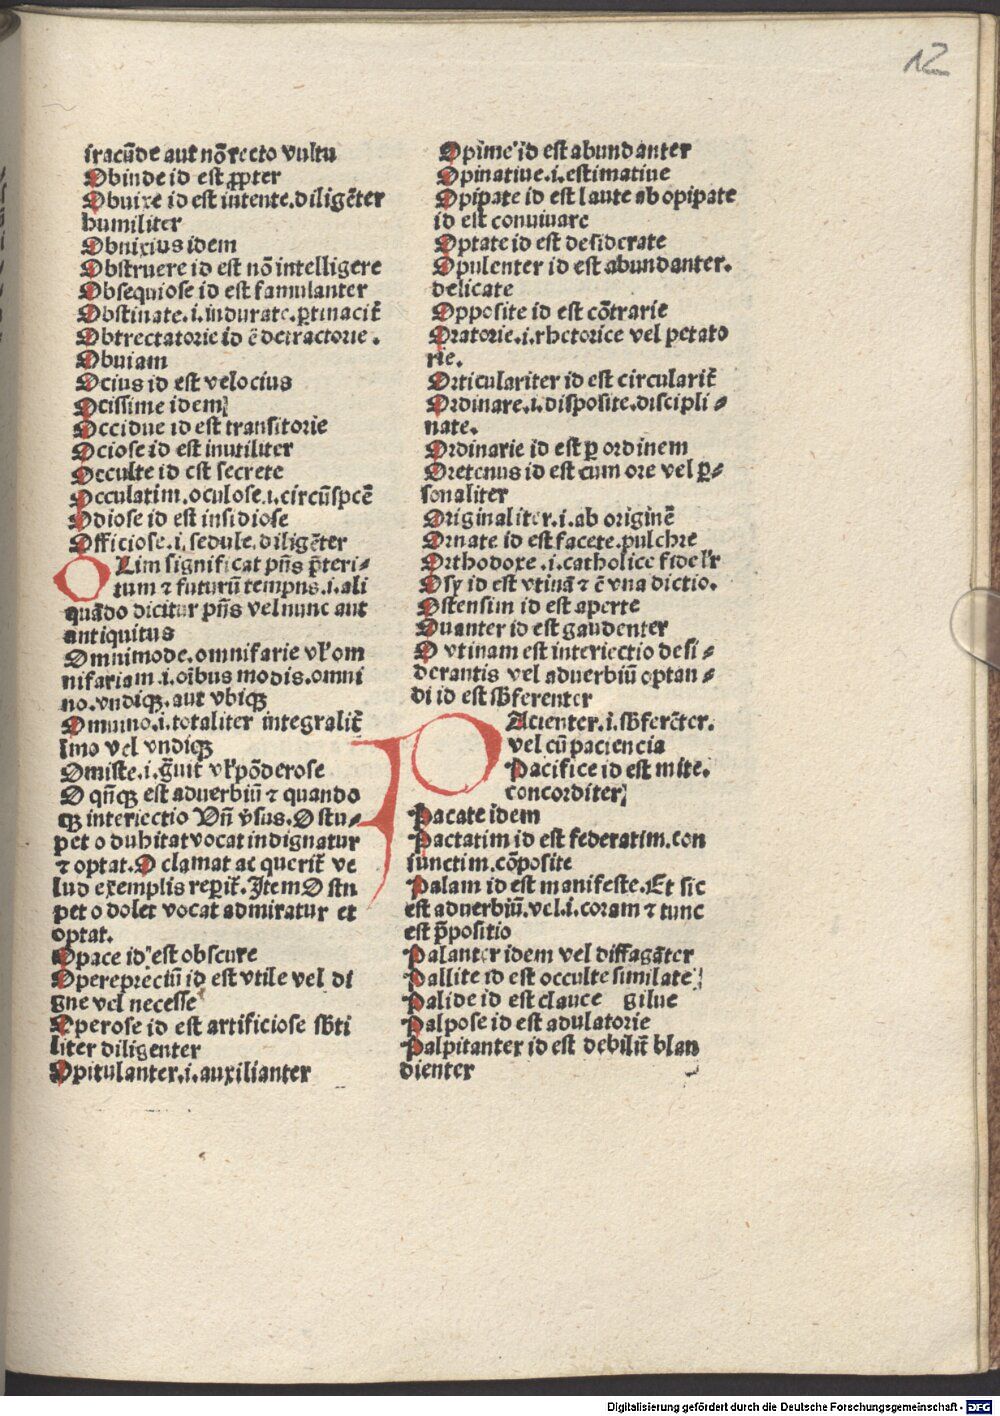 12
iracūde aut nō recto vultu
Obinde id est ꝓpter
Obnixe id est intente.diligēter
humiliter
Obnixius idem
Obstruere id est nō intelligere
Obsequiose id est famulanter
Obstinate.i.indurate.ꝑtinacit̄
Obtrectatorie id ē detractorie.
Obuiam
Ocius id est velocius
Ocissime idem
Occidue id est transitorie
Ociose id est inutiliter
Occulte id est secrete
Occulatim.oculose.i.circūspcē
Odiose id est insidiose
Officiose.i.sedule.diligēter
OLim significat pn̄s p̄teri⸗
tum ⁊ futurū tempus.i.ali
quādo dicitur pn̄s vel nunc aut
antiquitus
Omnimode.omnifarie vl' om
nifariam.i.oībus modis.omni
no.vndiqꝫ.aut vbiqꝫ
Omnino.i.totaliter integralit̄
Imo vel vndiqꝫ
Omiste.i.ḡuit̄ vl' pōderose
O qn̄qꝫ est aduerbiū ⁊ quando
qꝫ interiectio Vn̄ v̓sus.O stu⸗
pet o dubitat vocat indignatur
⁊ optat.O clamat ac querit̄ ve
lud exemplis reperit̄.Item O stu
pet o dolet vocat admiratur et
optat.
Opace id est obscure
Opereprecium̄ id est vtile vel di
gne vel necesse
Operose id est artificiose sb̄ti
liter diligenter
Opitulanter.i.auxilianter
Opime id est abundanter
Opinatiue.i.estimatiue
Opipate id est laute ab opipate
id est conuiuare
Optate id est desiderate
Opulenter id est abundanter.
delicate
Opposite id est cōtrarie
Oratorie.i.rhetorice vel petato
rie.
Orticulariter id est circularit̄
Ordinare.i.disposite.discipli⸗
nate.
Ordinarie id est ꝑ ordinem
Oretenus id est cum ore vel ꝑ⸗
sonaliter
Originaliter.i.ab originē
Ornate id est facete.pulchre
Orthodoxe.i.catholice fidel'r
Osy id est vtinā ⁊ ē vna dictio.
Ostensim id est aperte
Ouanter id est gaudenter
O vtinam est interiectio desi⸗
derantis vel aduerbiū optan⸗
di id est sb̄ferenter
PAcienter.i.sb̄ferēter.
vel cū paciencia
Pacifice id est mite.
concorditer
Pacate idem
Pactatim id est federatim.con
iunctim.cōposite
Palam id est manifeste.Et sic
est aduerbiū.vel.i.coram ⁊ tunc
est p̄positio
Palanter idem vel diffagāter
Pallite id est occulte similate
Palide id est glauce gilue
Palpose id est adulatorie
Palpitanter id est debilit̄ blan
dienter
Digitalisierung gefördert durch die Deutsche Forschungsgemeinschaft - DFG